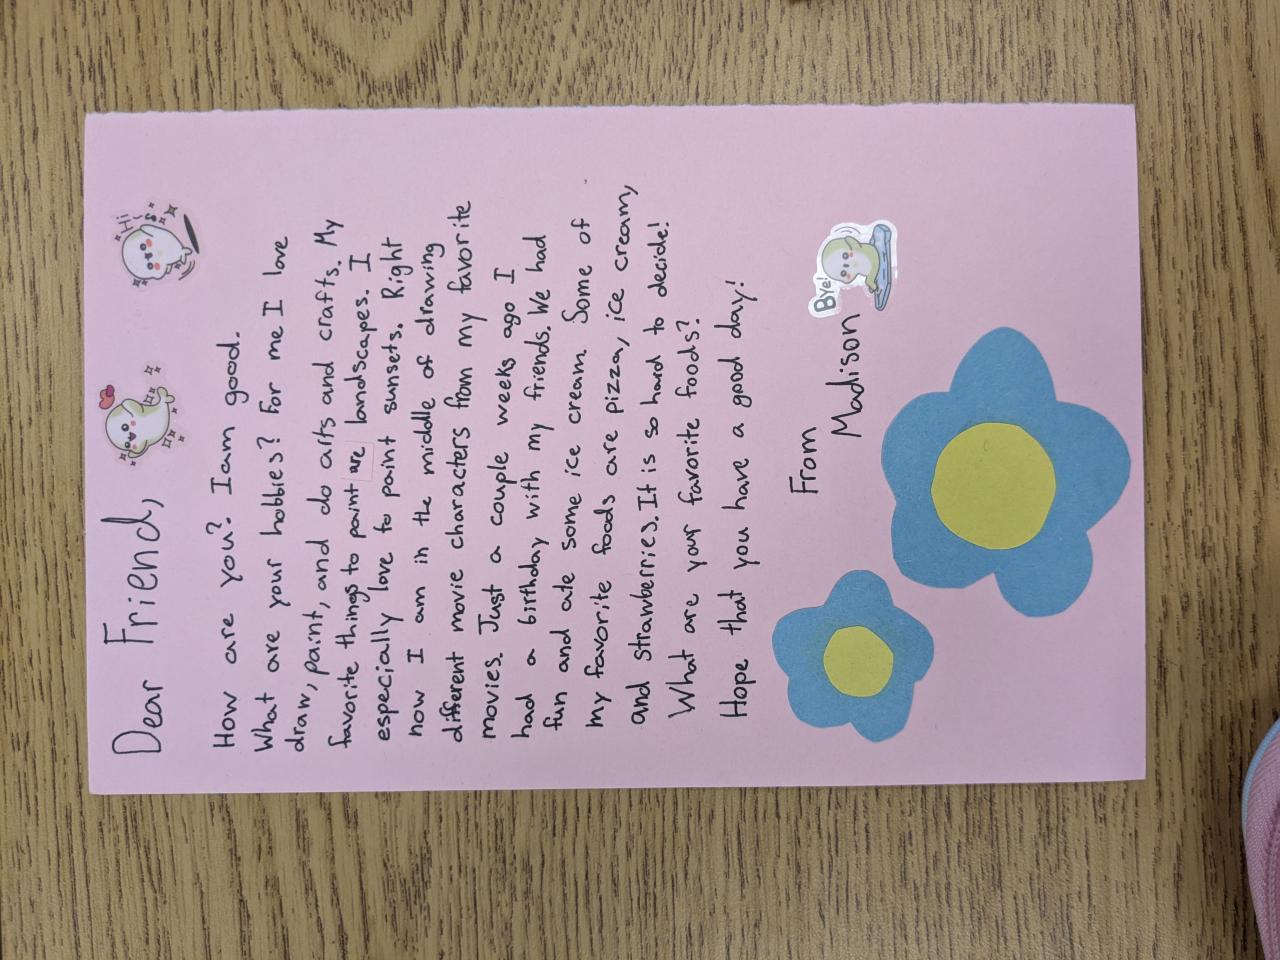 Dear Friend,
Hi
How are you? I am good.
What are your hobbies? For me I love
draw, paint, and do arts and crafts. My
favorite things to paint are landscapes. I
especially love to paint sunsets. Right
now I am in the middle of drawing
different movie characters from my favorite
movies. Just a couple weeks ago I
had a birthday with my friends. We had
fun and ate some ice cream. Some of
my favorite foods are pizza, ice cream,
and strawberries. It is so hard to decide!
What are your favorite foods?
Hope that you have a good day!
From
Madison
Bye!